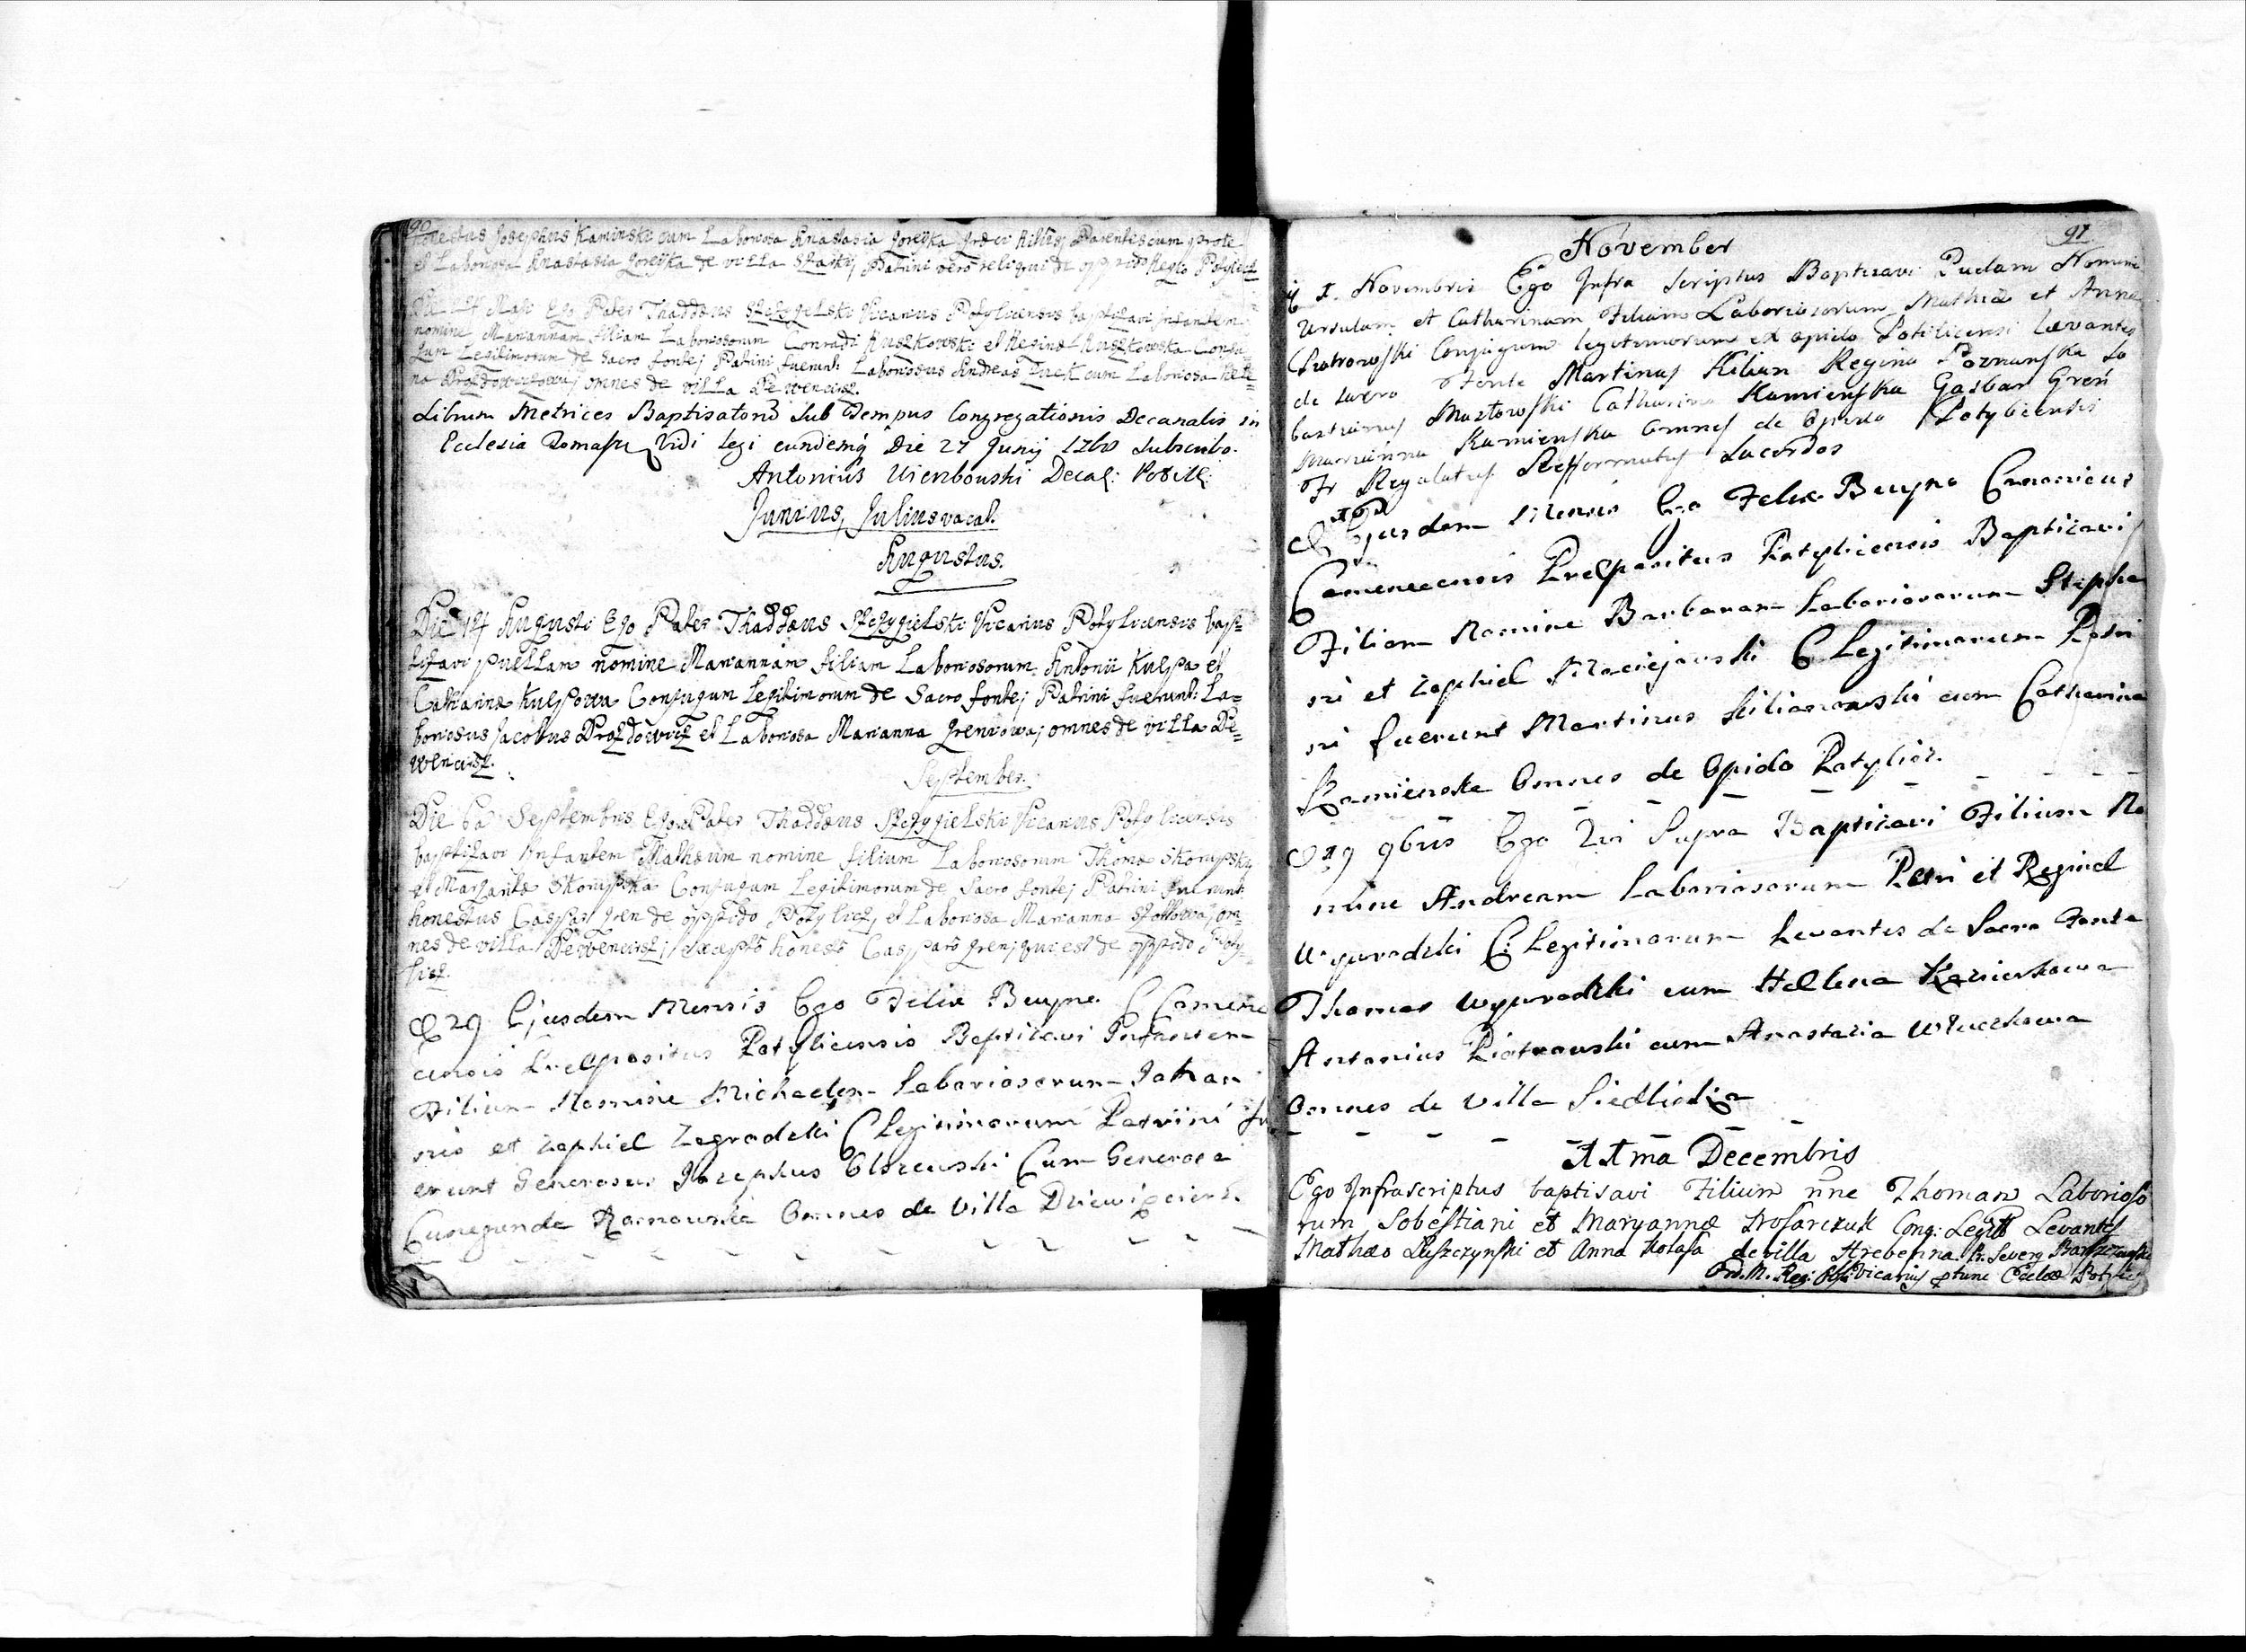 90
honestus Josephus Kaminski cum Laboriosa Anastasia Goreĉka Græci Ritus; Parentes cum prole
et Laboriosa Anastasia Goreĉka de villa Patrini vero reliqui de oppido Regio
Die 14 Maji Ego Pater Thaddæus Szczygielski Vicarius Potylicensis baptizavi Infantem
nomine Mariannam filiam Laboriosorum Conradi Ruszkowski et Reginæ Ruszkowska Conju-
gum Legitimorum de Sacro fonte; Patrini fuerunt Laboriosus Andreas cum Laboriosa
omnes de villa
Librum Metrices Baptisatorũ Sub Tempus Congregationis Decanalis in
Ecclesia Vidi legi eundemq̃ Die 27 Junij 1760 Subscribo.
Antonius Decaں:
Junius, Julius vacat.
Augustus.
Die 14 Augusti Ego Pater Thaddæus Szczygielski Vicarius Potylicensis bap=
tizavi puellam nomine Mariannam filiam Laboriosorum Antonii Kulpa et
Catharinæ Kulpowa Conjugum Legitimorum de Sacro fonte; Patrini fuerunt: La=
boriosus Jacobus Prozdowicz et Laboriosa Marianna Greniowa; omnes de villa De=
wencisz.
September.
Die 6ta Septembris Ego Pater Thaddæus Szczygielski Vicarius Potylicensis
baptizavi Infantem Mathæum nomine filium Laboriosorum Thomæ Skompsky
et Margaritæ Skompska Conjugum Legitimorum de Sacro fonte; Patrini fuerunt
honestus Caspar Gren de oppido Potylicz, et Laboriosa Marianna om=
nes de villa Dewencisz; excepto honesto Casparo Gren, qui est de oppido Poty=
licz.
D 29 Ejusdem Mensis Ego Felix Buyno C Camene
censis Præpositus Potylicensis Baptizavi Infantem
Filium Nomine Michaelem Laboriosorum Johan
nis et Zophiæ Zagrodzki C Legitimorum Patrini fu
erunt Generosus Josephus Olszewski Cum Generosa
Cunegunda Romowska Omnes de Villa
91
November
1. Novembris Ego Infra Scriptus Baptizavi Puelam Nomine
Ursulam et Catharinam Filiam Laboriosorum Mathiæ et Anna
Piotrowski Conjugum legitimorum ex opido Potilicensi Levantes
de sacro Fonte Martinus Kilian Regina Poznanska Se
bastianus Catharina Kamienska Gasbar Greń
Marianna Kamienska Omnes de Opido Potylicensis
Fr Regulatus Refformatus Sacerdos
D Ejusdem Mensis Ego Felix Buyno Canonicus
Camenecensis Præpositus Potylicensis Baptizavi
Filiam Nomine Barbaram Laboriosorum Stepha
ni et Zophiæ Maciejowski C Legitimorum Patri
ni fuerunt Martinus Kilianowski cum Catharina
Kamienska Omnes de Opido Potylicz.
D 19 9bris Ego Qui Supra Baptizavi Filium No
mine Andream Laboriosorum Petri et Reginæ
Wygwodzki C: Legitimorum Levantes de Sacro Fonte
Thomas Wygwodzki cum Hellena
Antonius Piotrowski cum Anastazia
Omnes de Villa Siedliska
11ma Decembris
Ego Infrascriptus baptisavi Filium nne Thomam Laborioso
rum Sobestiani et Maryannæ Conq: Legitt Levantes
Mathæo Luszczynski et Anna Kolasa de villa Hrebenna. Pr. Severq
Ord. M. Vicarius ptunc Ecclæ